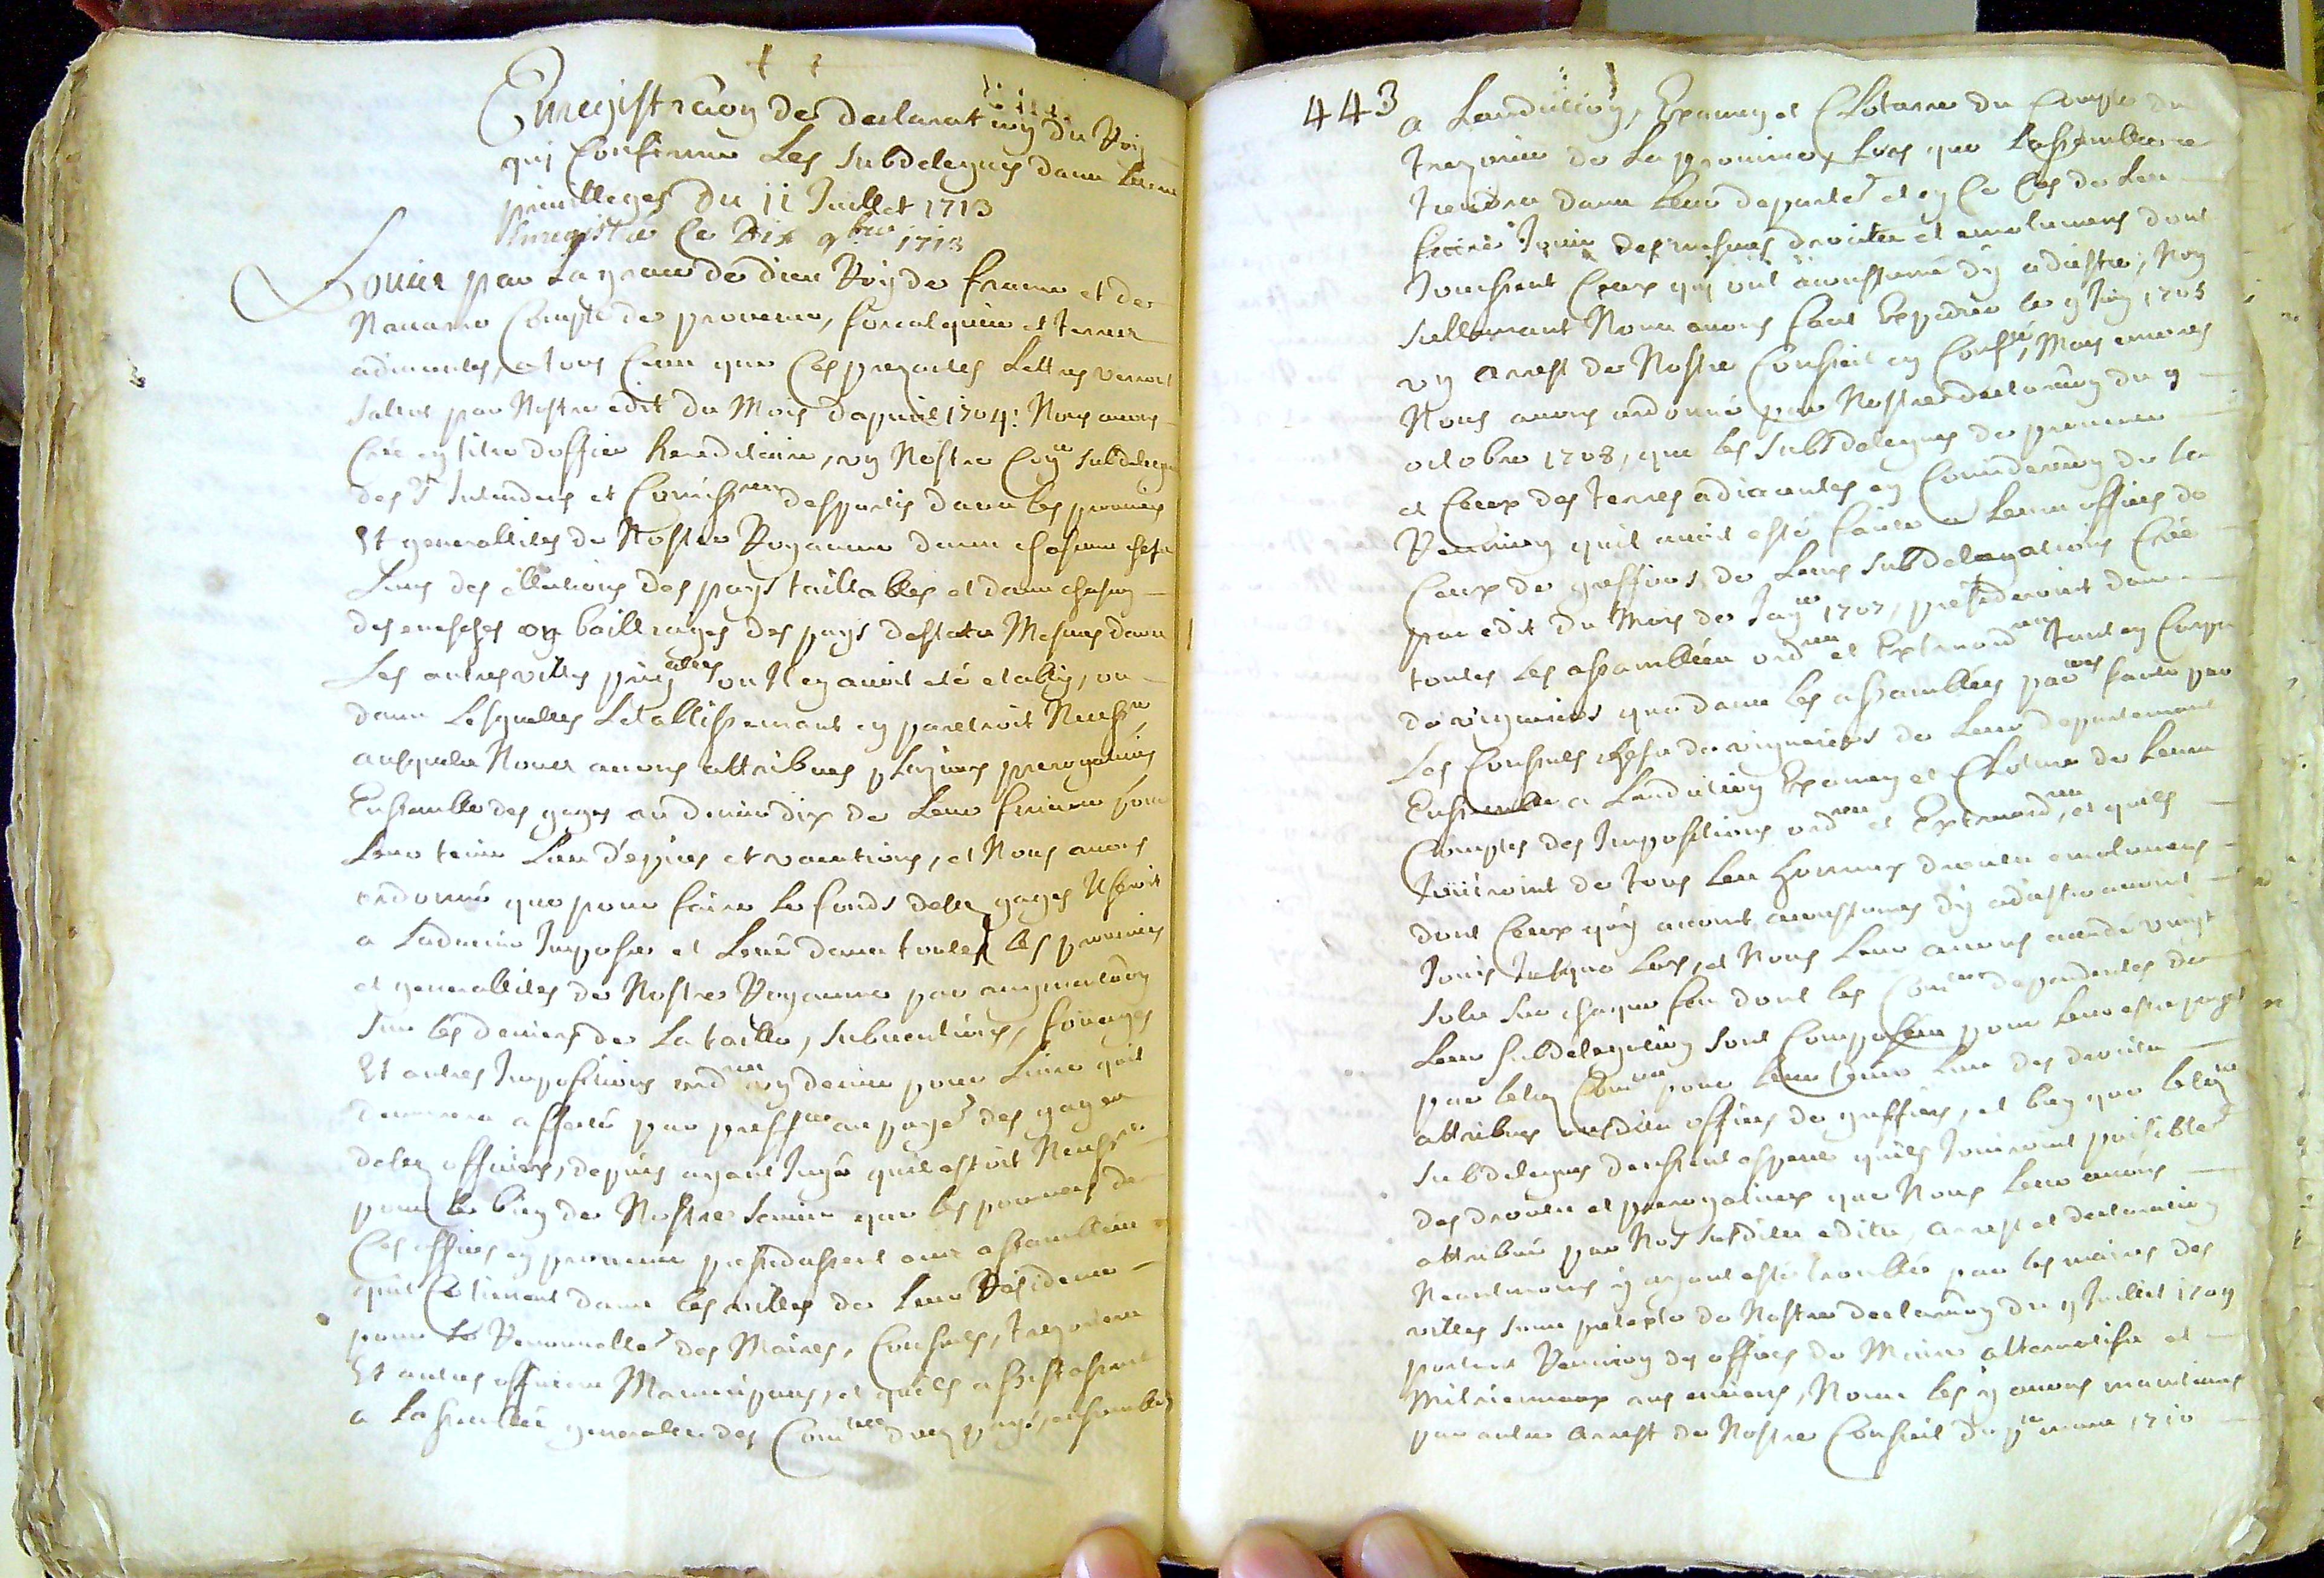 Enregistraõn de declaration du Roy
qui Confirme Les subdelegués dans Leurs
privilleges du 11 Juillet 1713
Enregistré Ce Dix 9bre 1713
Louis par La grace de dieu Roy de france et de
Nauarre Compte de prouence, forcalquier et terres
adiacentes, a tous Ceux que Ces presantes Lettres verront
salut par Nostre edit du Mois dapuril 1704: Nous auons
Créé en titre doffice hereditaire, un Nostre Coner subdelegué
des Srs Intendens et Comissres despartis dans les prouinces
Et generallites de Nostre Royaume dans chasque chefs
Lieus des ellections des pays taillables et dans chasqun
des eueschés ou bailliages des pays destats Mesmes dans
Les autres villes prinalles ou Il en auoit eté etably, ou
dans Lesquelles Letablissemant en paretroit Necessre
ausquels Nous auons attribués plusieurs prerogatiues
Ensemble des gages au denier dix de Leur finance pour
Leur tenir Lieu d'epices et vacations, et Nous auons
ordonné que pour faire Le fonds desdz gages Il seroit
a Laduenir Imposé et Leué dans toutes les prouinces
et generallites de Nostre Royaume par augmentaõn
sur les deniers de La taille, subuentions, foüages
Et autres Impositions ordres un denier pour Liure qui
demeurera affecté par preffce au payet des gages
desdz officiers, depuis ayant Jugé quil estoit Necessre
pour le bien de Nostre seruice que les pourueus de
Ces offices en prouence presidassent aux assamblées
quil Ce tienent dans les villes de Leur Residence
pour le Renouuellet des Maires, Consuls, tresoriers
Et autres officiers Municipaux, et quils assistassent
a Lassamblée generalle des Comtés dud pays, ensemble
443
a Laudition, Examen et Cloture du Compte du
tresorier de La prouince, Lors que Lassamblée ce
tiendra dans Leur departet et en Ce Cas de Leur
faire Jouir des mesmes droits et emolumens dont
Jouissent Ceux qui ont acoustumé dy adister, Non
sullemant Nous auons fait Expedier le 9 Juin 1705
un arrest de Nostre Conseil en Conse, Mais encores
Nous auons ordonné par Nostre declaraõn du 9
octobre 1708, que les subdelegués de prouence
et Ceux des terres adiacentes en Consideraõn de la
Reunion quil auoit esté faite a Leurs offices de
Ceux de greffiers de Leurs subdelegations Créé
par edit du Mois de Janer 1707, presideroint dans
toutes Les assamblées ordres et Extraordres tant en Corps
de vigueries que dans les assamblées parres faites par
Les Consuls chefs de vigueries de Leur departemant
Ensemble a Laudition Examen et Cloture de Leurs
Comptes des Impositions ordres et Extraordres, et quils
Joüiroint de tous Les honneurs droits emolumens
dont Ceux quy auoint acoustumés dy adister auoint
Jouis Jusque Lors, et Nous Leur auons acordé vingt
sols sur chaque feu dont les Comtés dependentes de
Leur subdelegation sont Composées pour Leur estre payés
par lesd Comtés pour Leur tenir Lieu des droits
attribués ausdits offices de greffiers, et bien que lesdz
subdelegués deussent esperer quils Jouiroint paisiblet
des droits et prerogatiues que Nous Leur auons
attribué par Nos susdits edits, arrest et declaration
Neantmoins y ayant esté troublés par les maires des
villes sous pretexte de Nostre declaraõn du 9 Juillet 1709
portant Reunion des offices de Maires alternatifs et
mitriennaux aus antiens, Nous les y auons maintenus
par autre arrest de Nostre Conseil du pr mars 1710